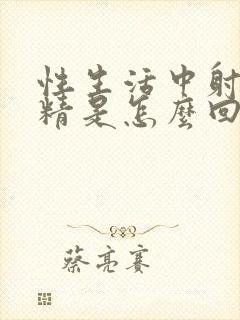 性生活中射
精是怎麼回
蔡亮赛